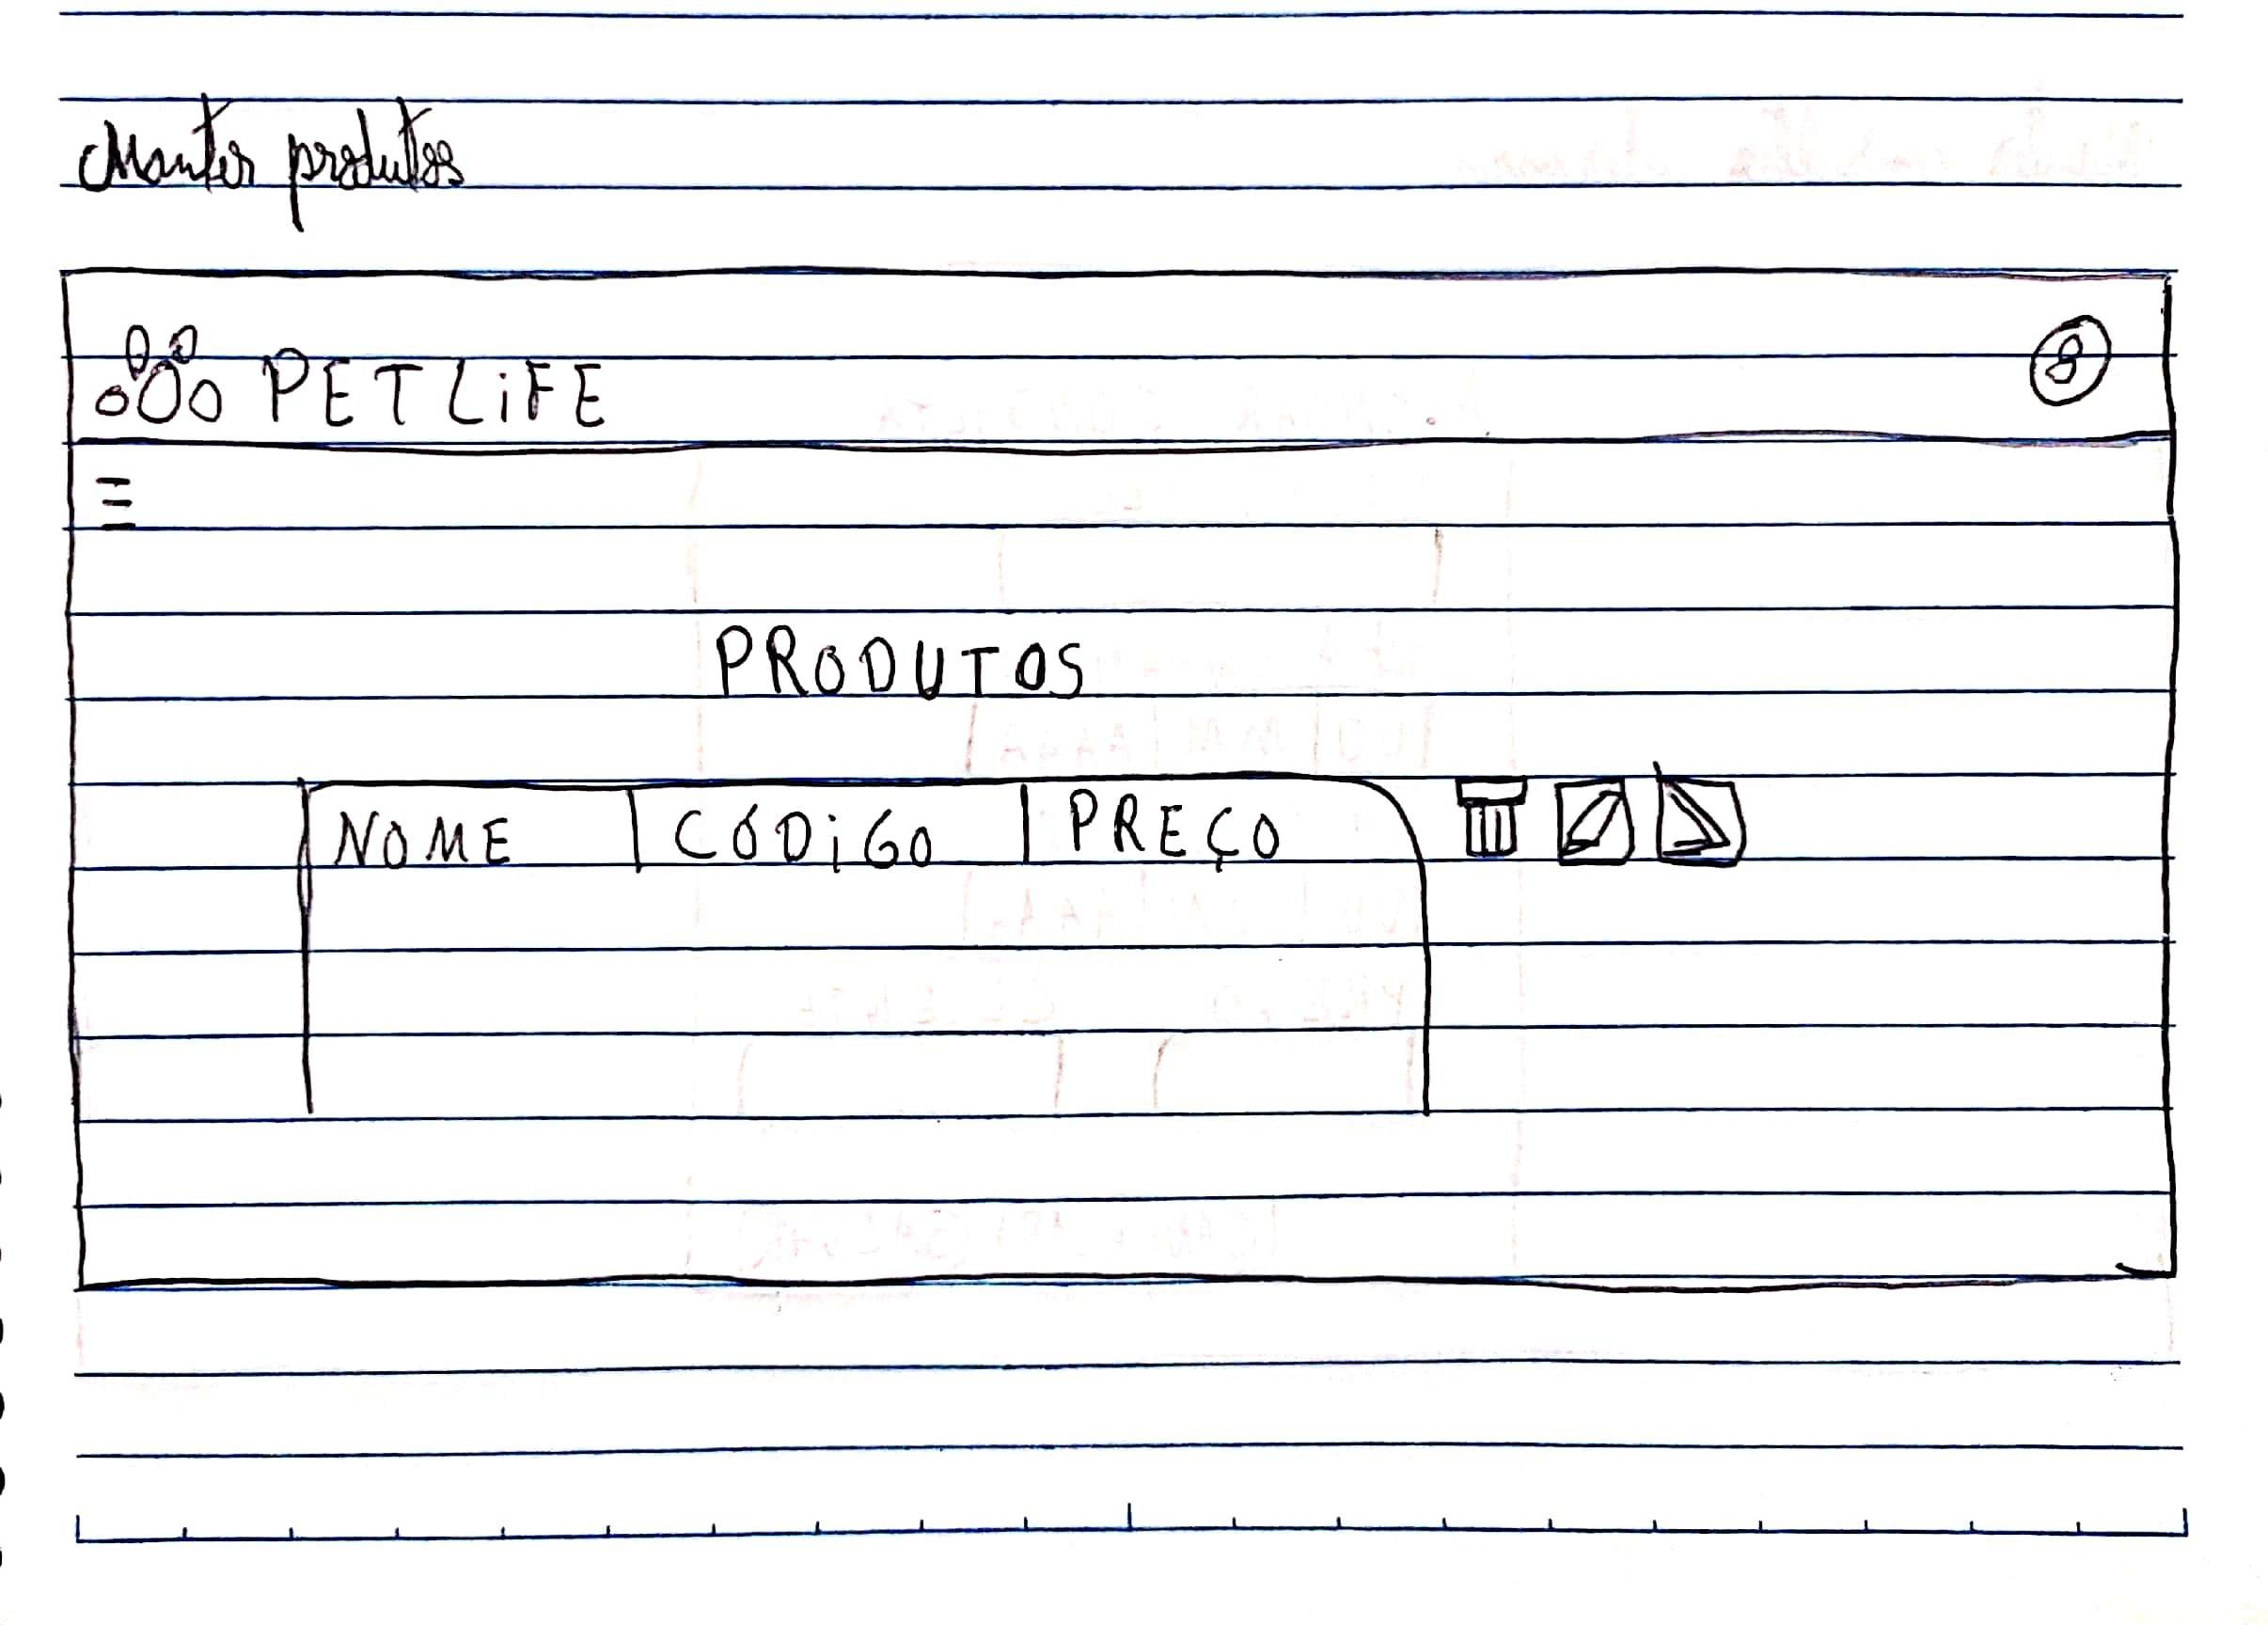 Manter produtos
PETLiFE
PRODUTOS
NOME CÓDiGO PREÇO